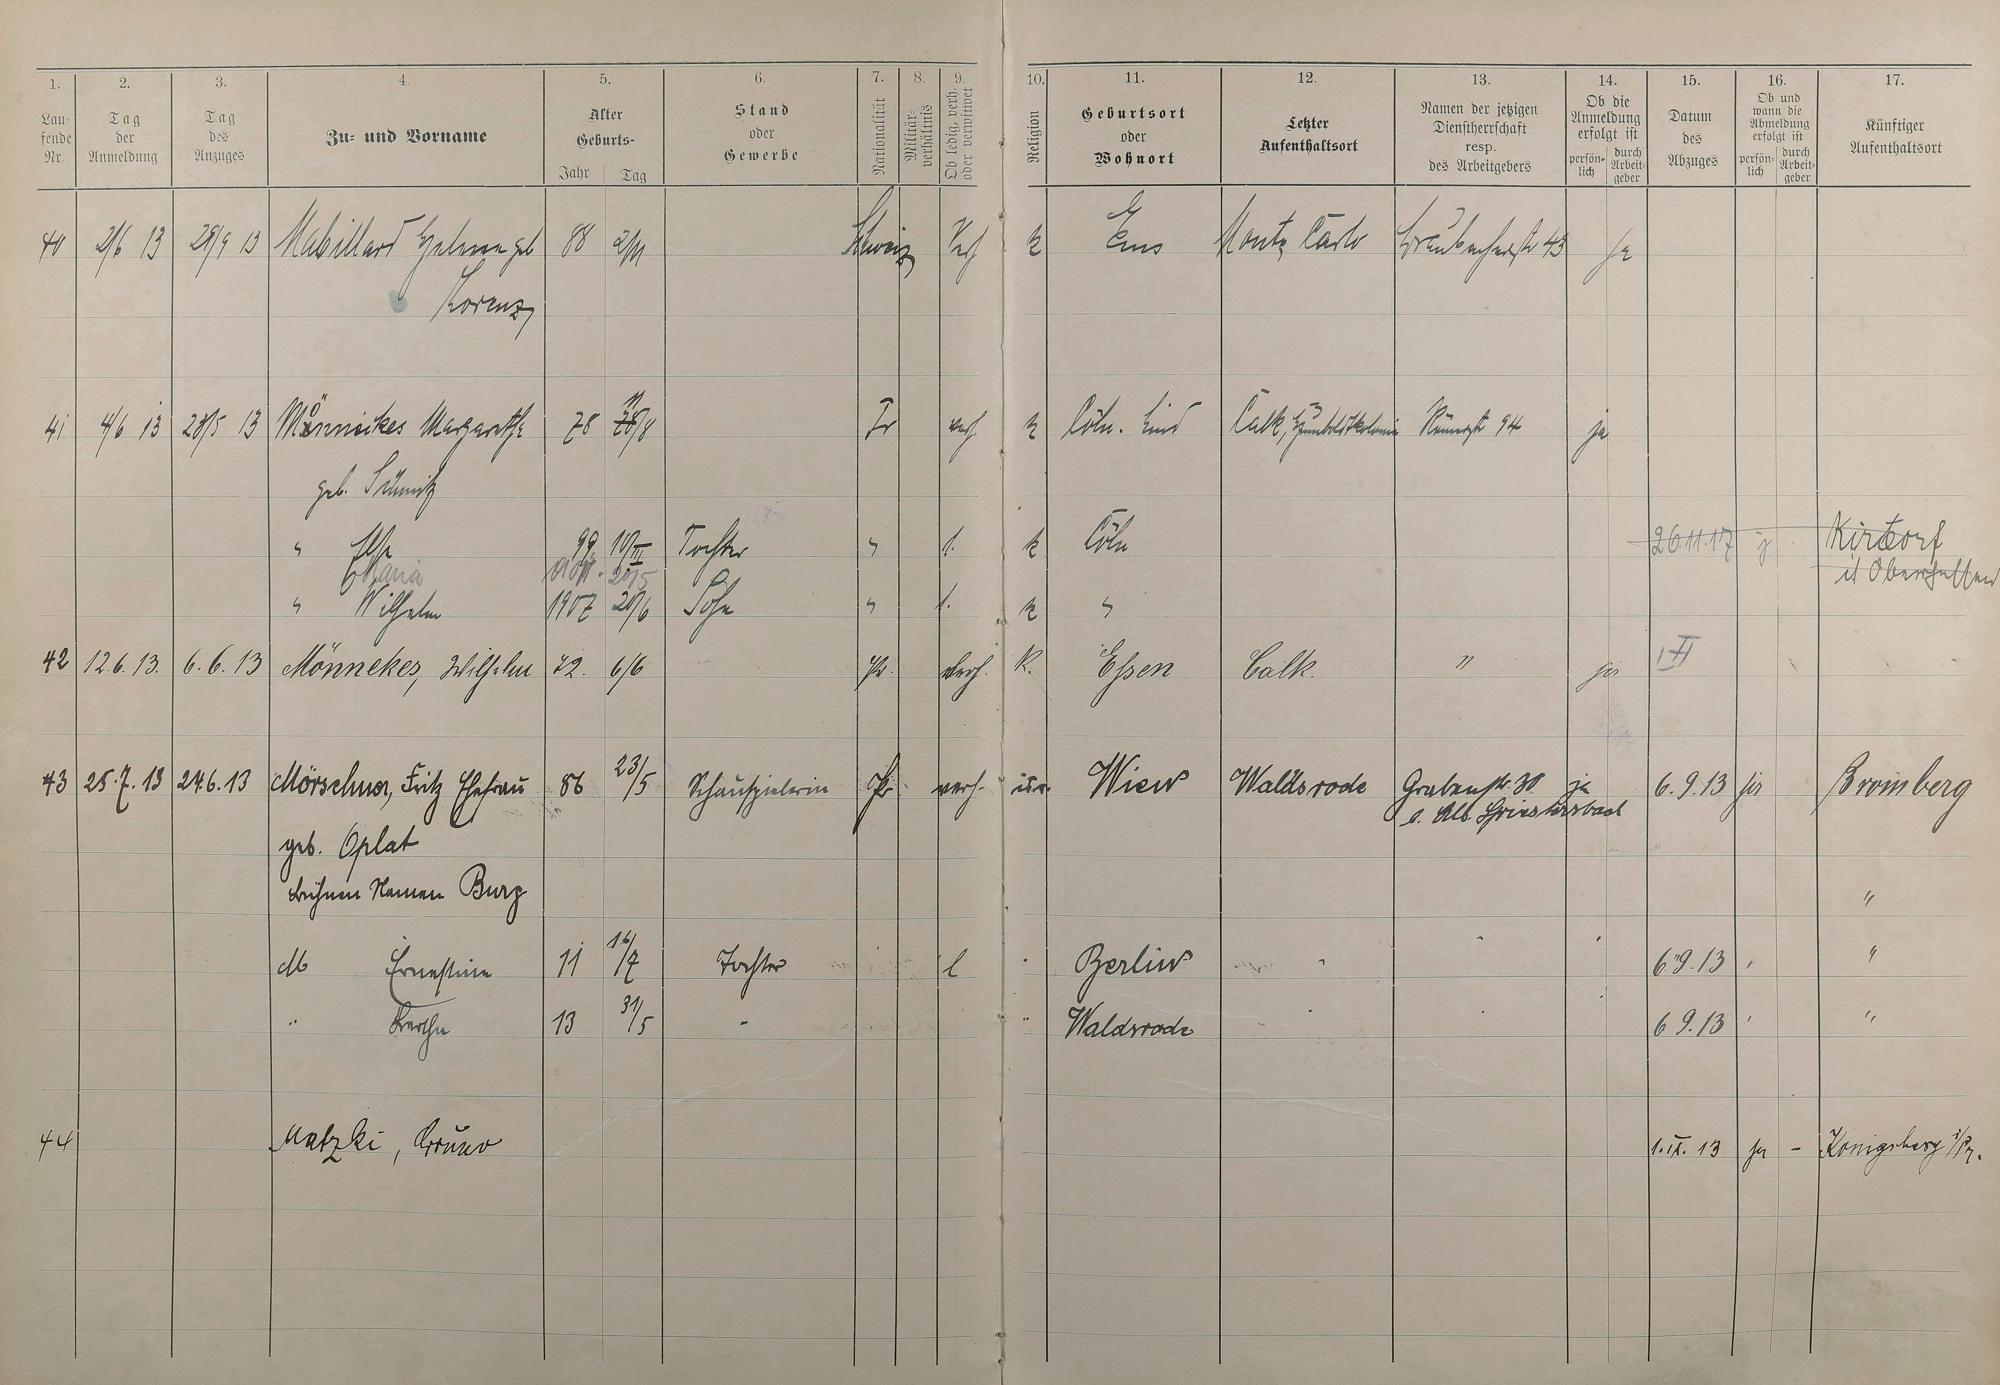 1. 2. 3. 4. 5. 6. 7. 8. 9. 10. 11. 12. 13. 14. 15. 16. 17.
Lau-
fende
Nr.
Tag
der
Anmeldung
Tag
des
Anzuges
Zu- und Vorname
Alter
Geburts-
Jahr Tag
Stand
oder
Gewerbe
Nationalität
Militär-
verhältnis
Ob ledig, verh.
oder verwitwet
Religion
Geburtsort
oder
Wohnort
Letzter
Aufenthaltsort
Namen der jetzigen
Dienstherrschaft
resp.
des Arbeitgebers
Ob die
Anmeldung
erfolgt ist
persön-
lich
durch
Arbeit-
geber
Datum
des
Abzuges
Ob und
wann die
Abmeldung
erfolgt ist
persön-
lich
durch
Arbeit-
geber
Künftiger
Aufenthaltsort
40 2/6 13 29/4 13 Mabillard geb 88 2/11 Schweiz Verh k Ems Monte Carlo 43 ja
Lorenz
41 4/6 13 28/5 13 Mönnikes Margarethe 78 11/8 Pr verh. k Cöln. Lind Calk, Humboldtkolonie Römerstr 94 ja
geb. Schmitz
" Else 99 10/III Tochter " l. k Cöln 26.11.17 j Kirtorf
Maria 20/5 i Oberhessen
" Wilhelm 1907 20/6 Sohn " l. k "
42 12.6.13. 6.6.13 Mönnekes, Wilhelm 72. 6/6 Pr. verh. K. Essen Calk. " ja
43 25.7.13 24.6.13 Mörschner, Fritz Ehefrau 86 23/5 Schauspielerin Pr verh. isr. Wien Waldsrode Grabenstr. 30 ja 6.9.13 ja Bromberg
b. Alb. Griestersbach
geb. Oplat
Bühnen Namen Burg "
M Ernestine 11 16/7 Tochter l " Berlin " 6.9.13 " "
" Bertha 13 31/5 " " Waldsrode " 6.9.13 " "
44 Matzki, Bruno 1.IX.13 ja - Königsberg i/Pr.